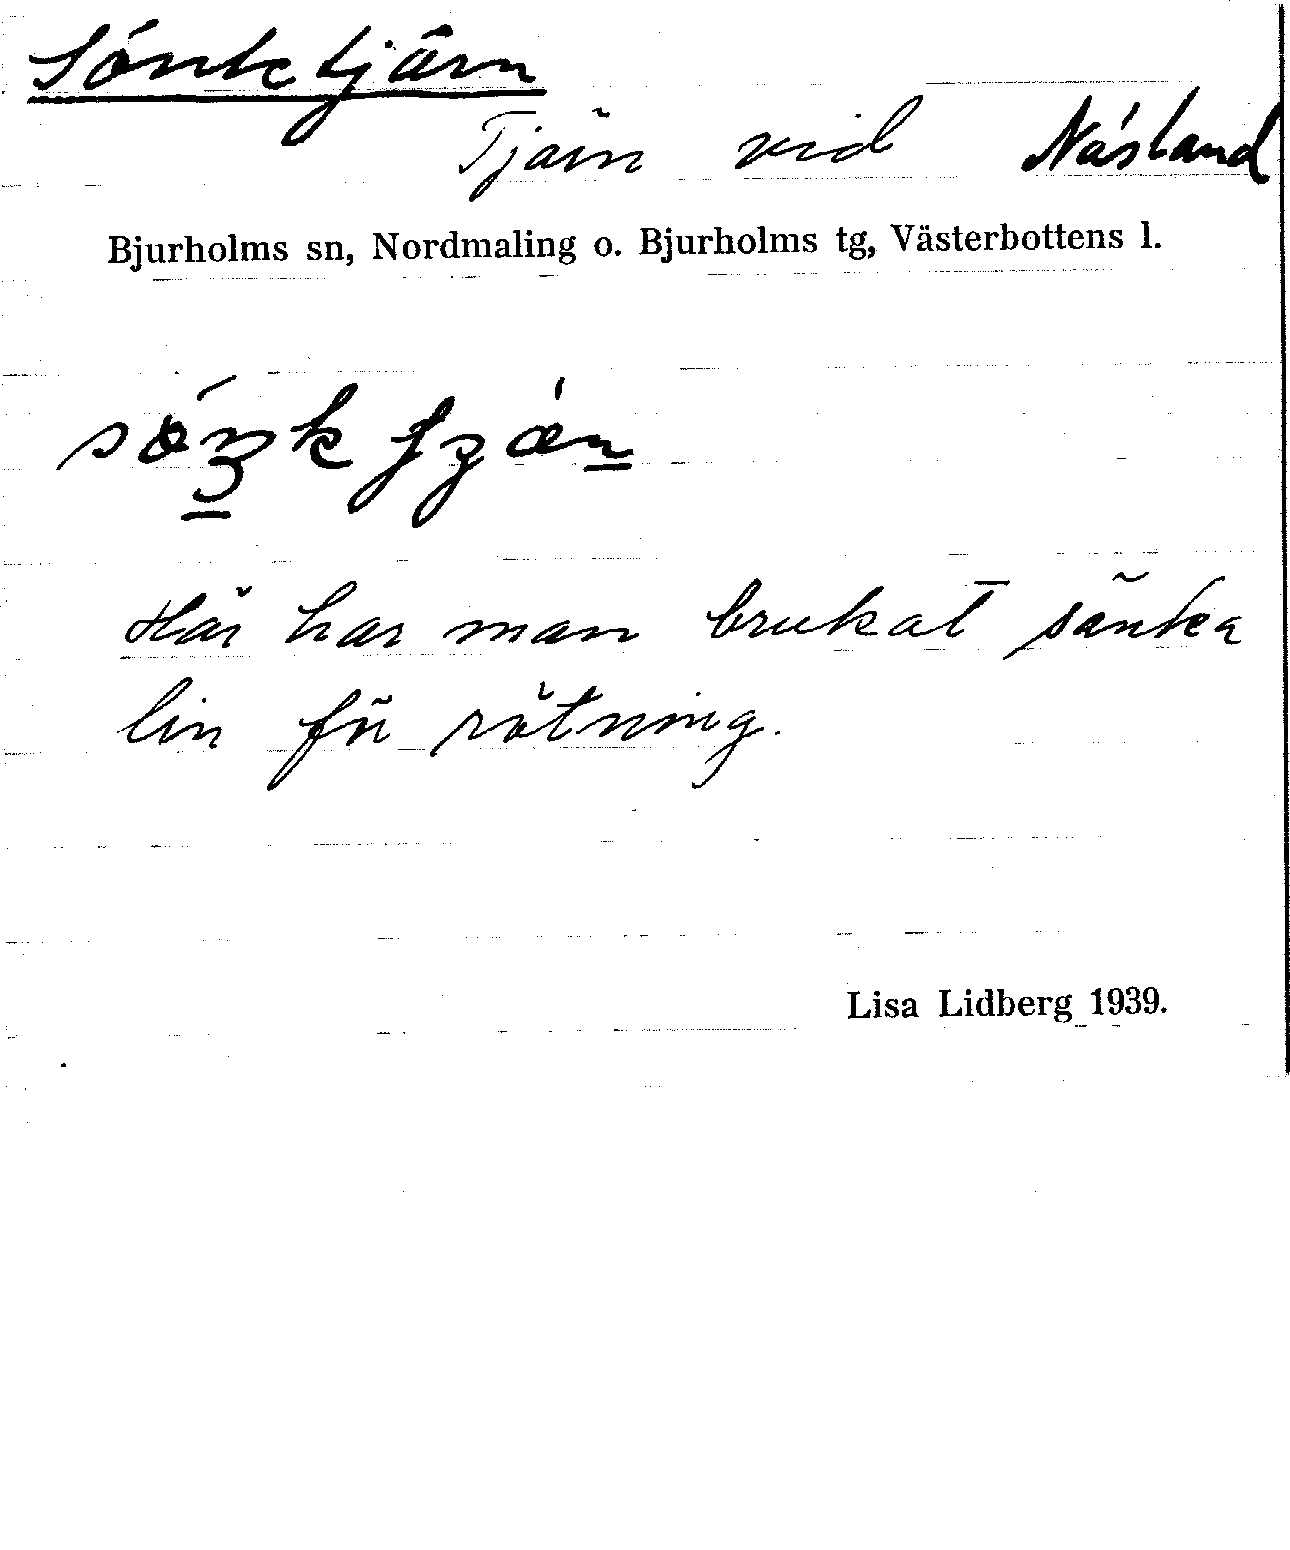 Sänktjärn
Tjärn vid Näsland
Bjurholms sn, Nordmaling o. Bjurholms tg, Västerbottens l.
Här har man brukat sänka
lin för rötning.
Lisa Lidberg 1939.